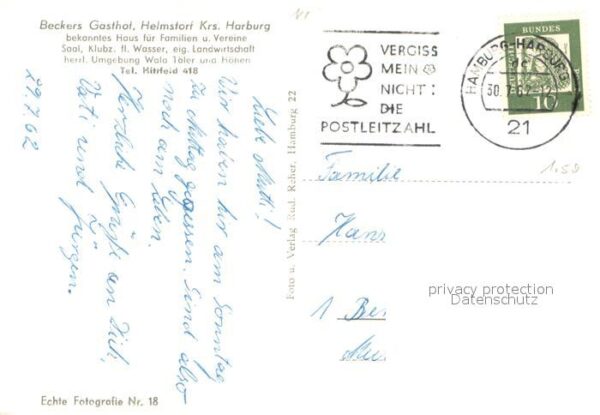 Beckers Gasthof, Helmstorf Krs. Harburg
bekanntes Haus für Familien u. Vereine
Saal, Klubz. fl. Wasser, eig. Landwirtschaft
herrl. Umgebung Wald Täler und Höhen
Tel. Hittfeld 418
29.7.62
Liebe Mutti!
Wir haben hier am Sonntag
zu Mittag gegessen. Sind also
noch am Leben.
Herzliche Grüße an Dich,
Vati und Jürgen.
Echte Fotografie Nr. 18
Foto u. Verlag Rud. Reher, Hamburg 22
VERGISS
MEIN
NICHT:
DIE
POSTLEITZAHL
HAMBURG-HARBURG
21
BUNDES
10
1.50
Familie
Hans
1 Be
privacy protection
Datenschutz